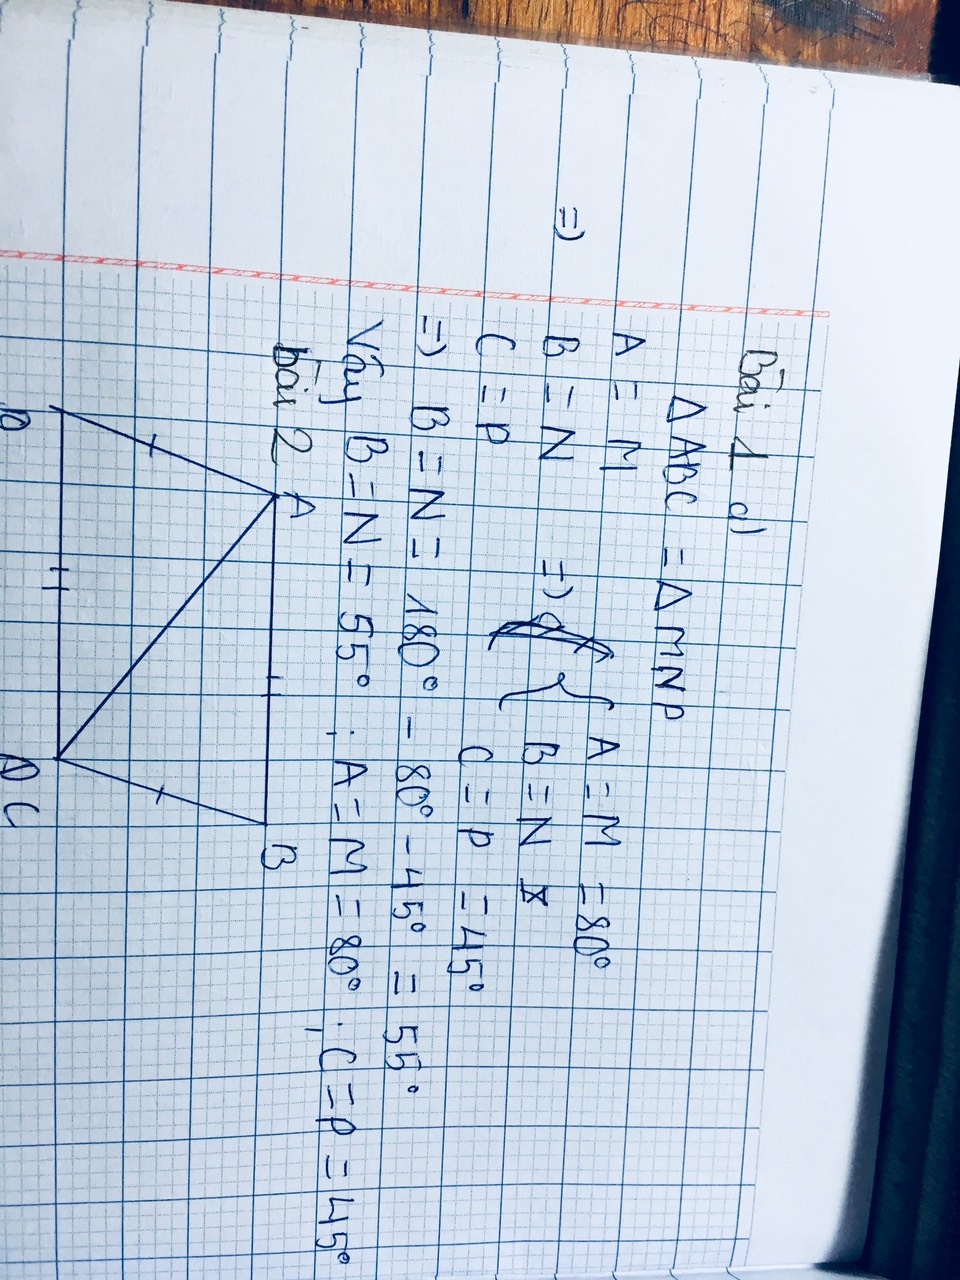 Bài 1 d)
Δ ABC = Δ MNP
A = M
=) B = N
C = P
=) { A = M = 80°
B = N
C = P = 45°
=) B = N = 180° - 80° - 45° = 55°
Vậy B = N = 55° ; A = M = 80° ; C = P = 45°
bài 2
A
B
D
C